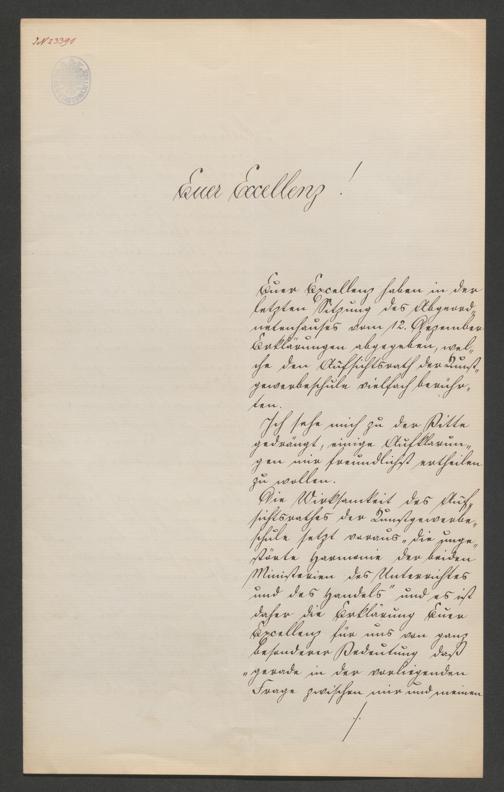 JN 23390
Euer Excellenz!
Euer Excellenz haben in der
letzten Sitzung des Abgeord„
netenhauses vom 12. Dezember
Erklärungen abgegeben, wel„
che den Aufsichtsrath der Kunst„
gewerbeschule vielfach berühr„
ten.
Ich sehe mich zu der Bitte
gedrängt, einige Aufklärun„
gen mir freundlichst ertheilen
zu wollen.
Die Wirksamkeit des Auf„
sichtsrathes der Kunstgewerbe„
schule setzt voraus „die unge„
störte Harmonie der beiden
Ministerien des Unterrichtes
und des Handels" und es ist
daher die Erklärung Euer
Excellenz für uns von ganz
besonderer Bedeutung daß
„gerade in der vorliegenden
Frage zwischen mir und meinem
./.